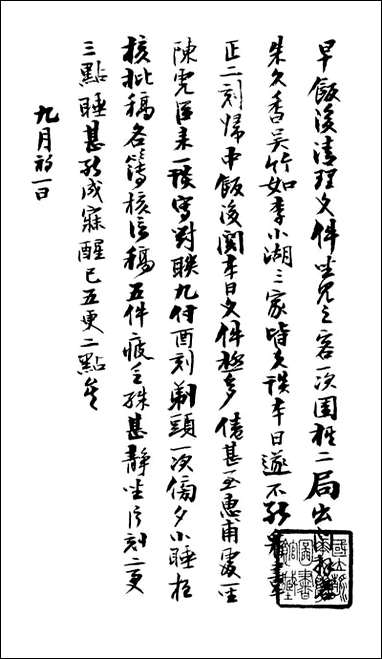 早飯後清理文件坐見之客一次圍棋二局出門拜
朱久香吳竹如李小湖三家皆久談本日遂不能畢事
正二刻歸中飯後閱本日文件極多倦甚至惠甫處一坐
陳虎臣來一談寫對聯九付酉刻剃頭一次傍夕小睡夜
核批稿各簿核信稿五件疲乏殊甚靜坐片刻二更
三點睡甚能成寐醒已五更二點矣
九月初一日